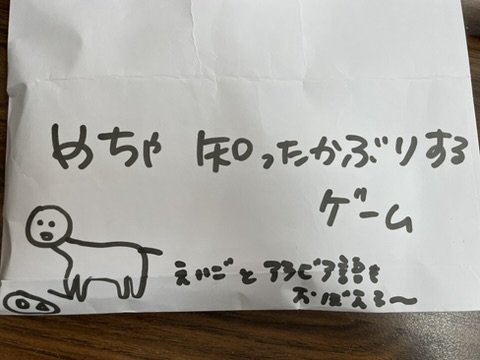 めちゃ 知ったかぶりする
ゲーム
えいごとアラビア語を
おぼえろ〜